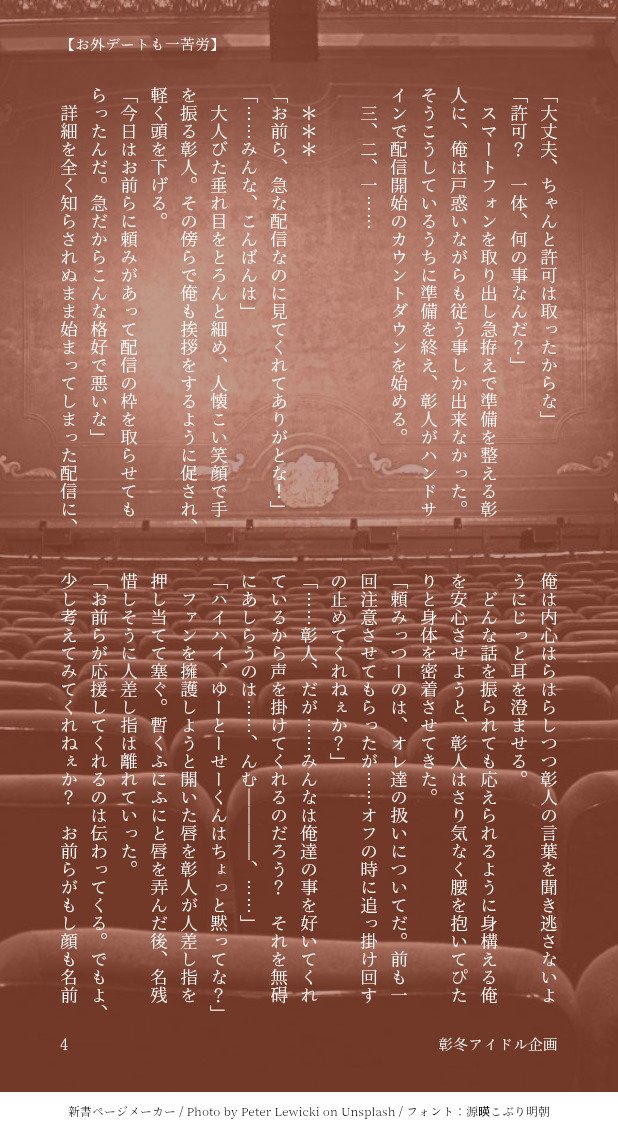 【お外デートも一苦労】
「大丈夫、ちゃんと許可は取ったからな」
「許可？　一体、何の事なんだ？」
　スマートフォンを取り出し急拵えで準備を整える彰
人に、俺は戸惑いながらも従う事しか出来なかった。
そうこうしているうちに準備を終え、彰人がハンドサ
インで配信開始のカウントダウンを始める。
　三、二、一……
　＊＊＊
「お前ら、急な配信なのに見てくれてありがとな！」
「……みんな、こんばんは」
　大人びた垂れ目をとろんと細め、人懐こい笑顔で手
を振る彰人。その傍らで俺も挨拶をするように促され、
軽く頭を下げる。
「今日はお前らに頼みがあって配信の枠を取らせても
らったんだ。急だからこんな格好で悪いな」
　詳細を全く知らされぬまま始まってしまった配信に、
俺は内心はらはらしつつ彰人の言葉を聞き逃さないよ
うにじっと耳を澄ませる。
　どんな話を振られても応えられるように身構える俺
を安心させようと、彰人はさり気なく腰を抱いてぴた
りと身体を密着させてきた。
「頼みっつーのは、オレ達の扱いについてだ。前も一
回注意させてもらったが……オフの時に追っ掛け回す
の止めてくれねぇか？」
「……彰人、だが……みんなは俺達の事を好いてくれ
ているから声を掛けてくれるのだろう？　それを無碍
にあしらうのは……、んむ――――、……」
「ハイハイ、ゆーとーせーくんはちょっと黙ってな？」
　ファンを擁護しようと開いた唇を彰人が人差し指を
押し当てて塞ぐ。暫くふにふにと唇を弄んだ後、名残
惜しそうに人差し指は離れていった。
「お前らが応援してくれるのは伝わってくる。でもよ、
少し考えてみてくれねぇか？　お前らがもし顔も名前
4
彰冬アイドル企画
新書ページメーカー / Photo by Peter Lewicki on Unsplash / フォント：源暎こぶり明朝